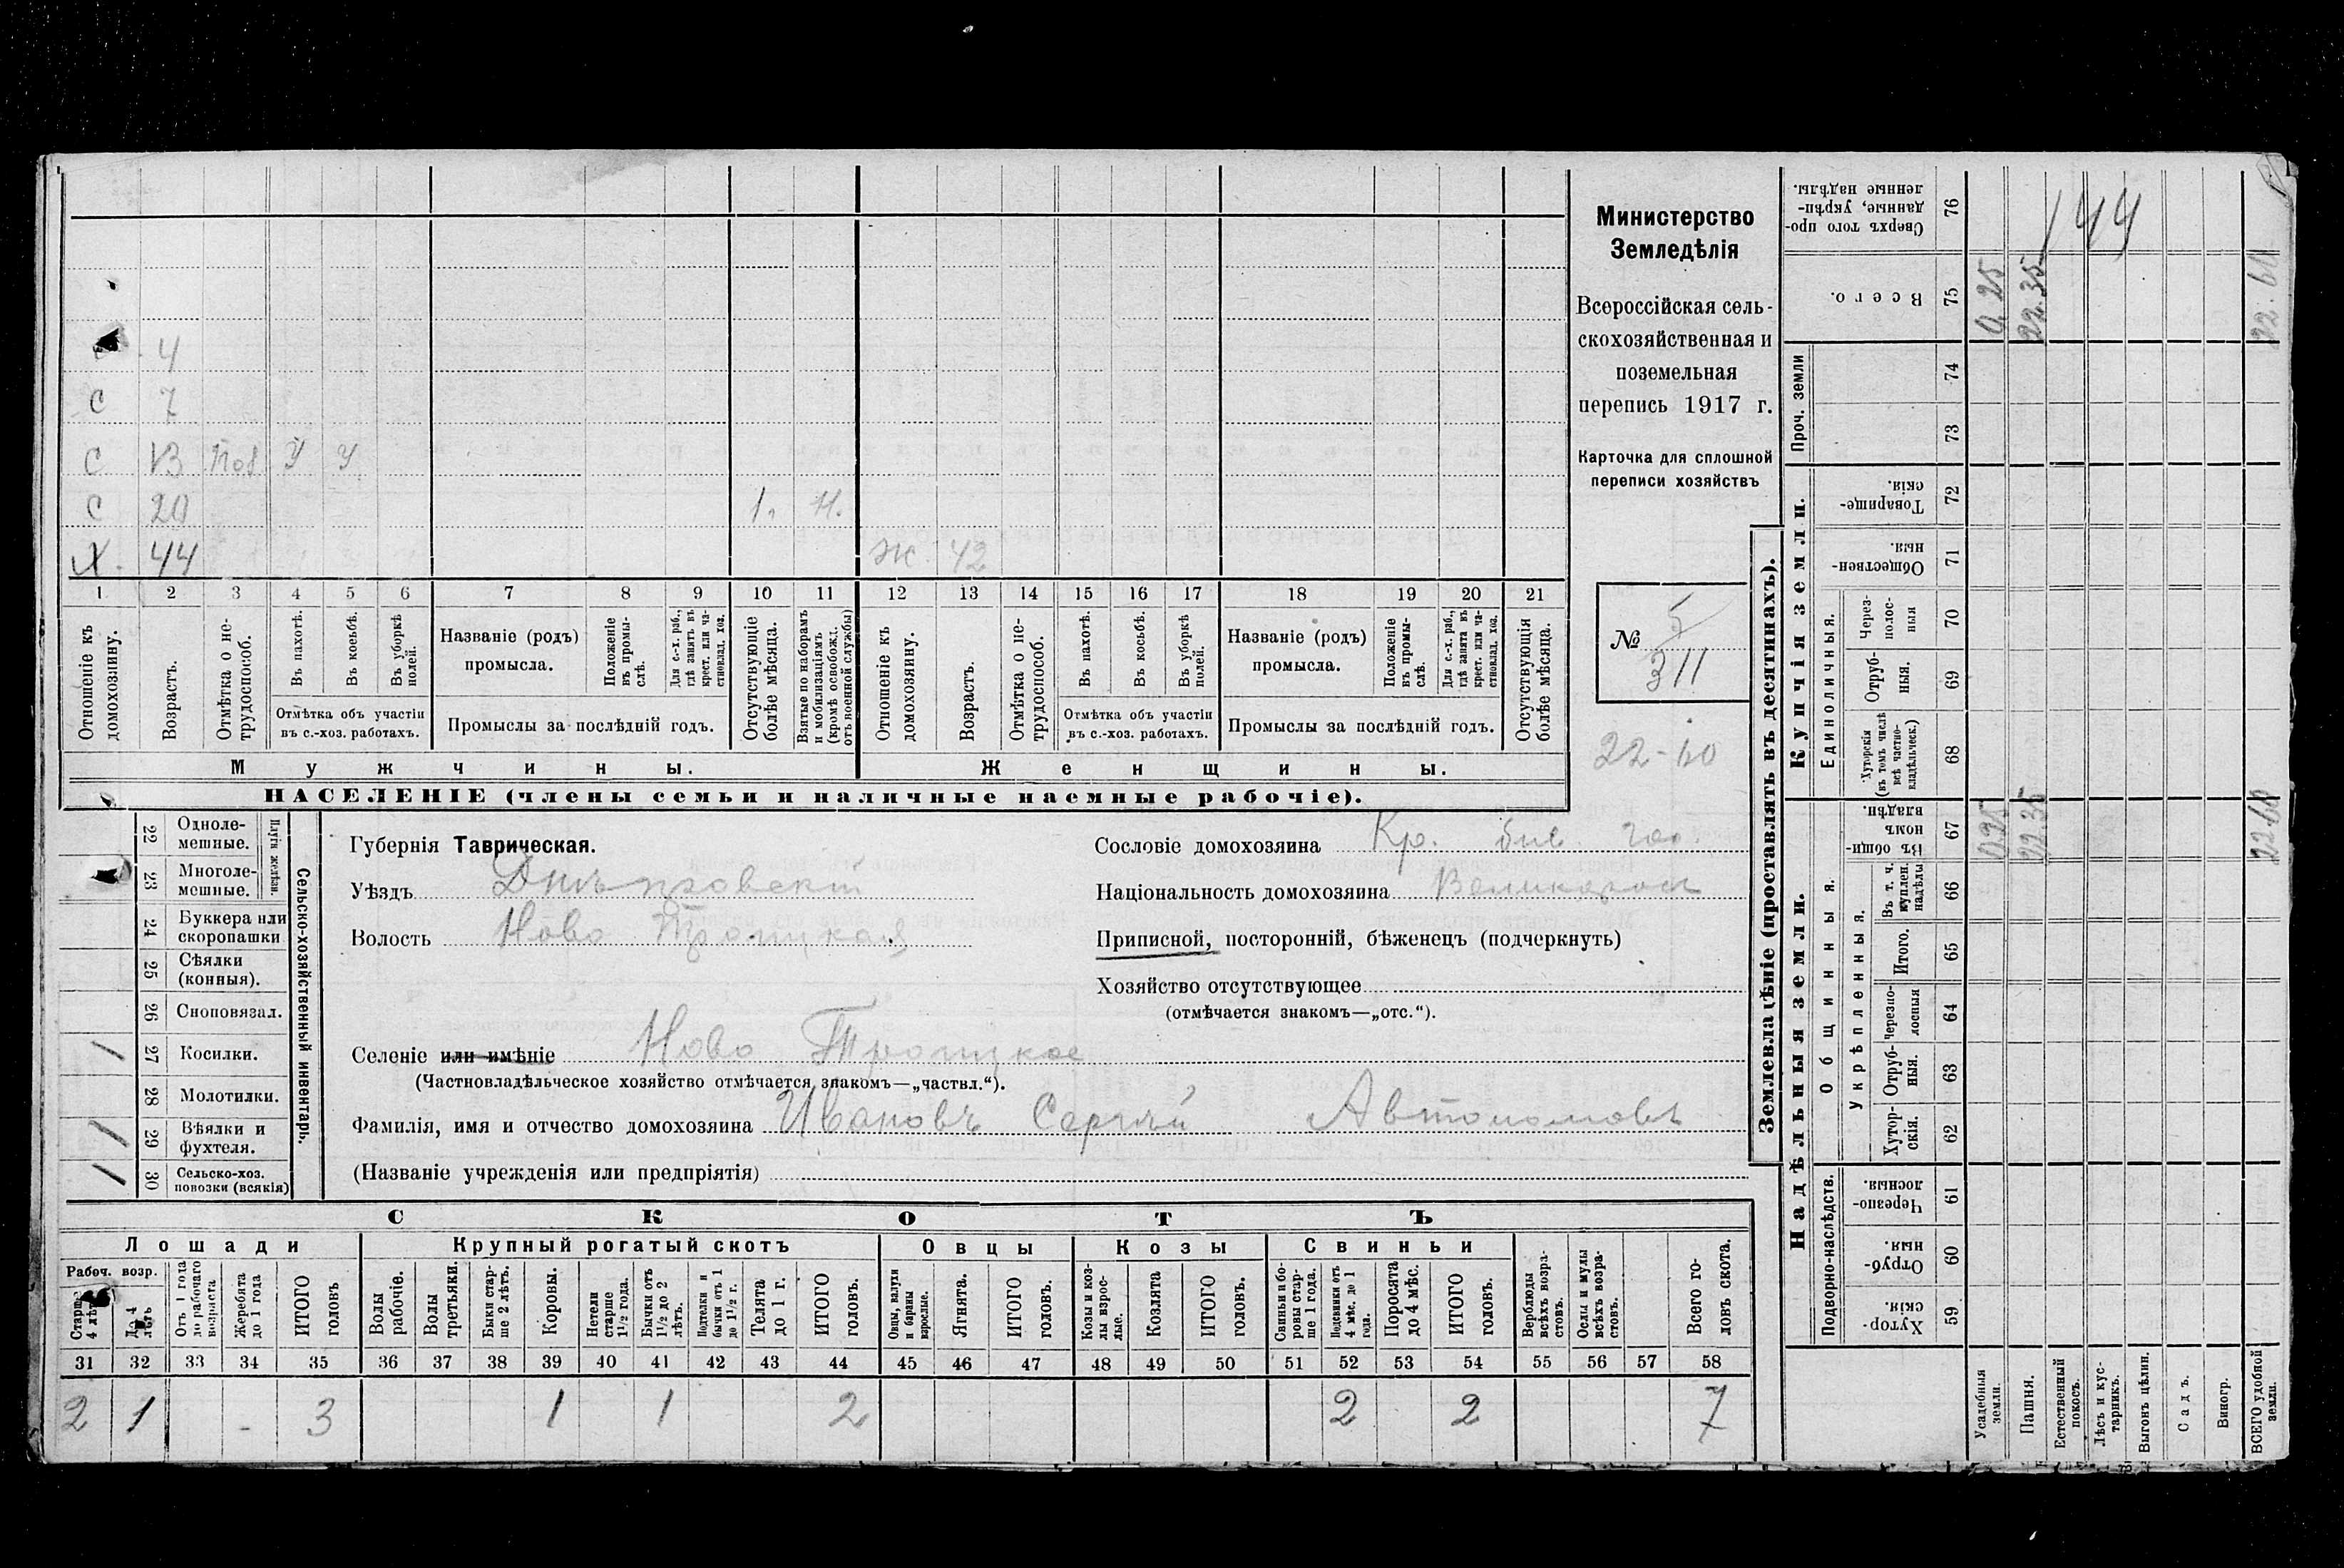 Министерство
Земледѣлія
Всероссійская сель-
скохозяйственная и
поземельная
перепись 1917 г.
Карточка для сплошной
переписи хозяйствъ
№ 5
311
22-60
4
С 7
С У У
С 20 1. Н.
Х. 44 Ж 42
1 2 3 4 5 6 7 8 9 10 11 12 13 14 15 16 17 18 19 20 21
Отношеніе къ домохозяину.
Возрастъ.
Отмѣтка о не-трудоспособ.
Въ пахотѣ.
Въ косьбѣ.
Въ уборкѣ полей.
Отмѣтка объ участіи
въ с.-хоз. работахъ.
Названіе (родъ)
промысла.
Положеніе въ промы-слѣ.
Для с.-х. раб., гдѣ занятъ въ крест. или ча-стновлад. хоз.
Промыслы за послѣдній годъ.
Отсутствующіе болѣе мѣсяца.
Взятые по наборамъ и мобилизаціямъ (кромѣ освобожд. отъ военной службы)
Отношеніе къ домохозяину.
Возрастъ.
Отмѣтка о не-трудоспособ.
Въ пахотѣ.
Въ косьбѣ.
Въ уборкѣ полей.
Отмѣтка объ участіи
въ с.-хоз. работахъ.
Названіе (родъ)
промысла.
Положеніе въ промы-слѣ.
Для с.-х. раб., гдѣ занята въ крест. или ча-стновлад. хоз.
Промыслы за послѣдній годъ.
Отсутствующія болѣе мѣсяца.
Мужчины. Женщины.
НАСЕЛЕНІЕ (члены семьи и наличные наемные рабочіе).
Сельско-хозяйственный инвентарь.
Плуги желѣзн.
22 Одноле-мешные.
23 Многоле-мешные.
24 Буккера или скоропашки
25 Сѣялки (конныя).
26 Сноповязал.
27 Косилки. 1
28 Молотилки.
29 Вѣялки и фухтеля. 1
30 Сельско-хоз. повозки (всякія) 1
Губернія Таврическая.
Уѣздъ Днѣпровскій
Волость Ново Троицкая
Селеніе или имѣніе Ново Троицкое
(Частновладѣльческое хозяйство отмѣчается знакомъ—„частвл.“).
Фамилія, имя и отчество домохозяина Ивановъ Сергѣй Автономовъ
(Названіе учрежденія или предпріятія)
Сословіе домохозяина Кр. быв. гос.
Національность домохозяина Великоросъ
Приписной, посторонній, бѣженецъ (подчеркнуть)
Хозяйство отсутствующее
(отмѣчается знакомъ—„отс.“).
СКОТЪ
Лошади Крупный рогатый скотъ Овцы Козы Свиньи
Рабоч. возр.
Старше 4 лѣтъ
До 4 лѣтъ
Отъ 1 года до рабочаго возраста
Жеребята до 1 года
ИТОГО головъ
Волы рабочіе.
Волы третьяки.
Быки стар-ше 2 лѣтъ.
Коровы.
Нетели старше 1 1/2 года.
Бычки отъ 1 1/2 до 2 лѣтъ.
Подтелки и бычки отъ 1 до 1 1/2 г.
Телята до 1 г.
ИТОГО головъ.
Овцы, валухи и бараны взрослые.
Ягнята.
ИТОГО головъ.
Козы и коз-лы взрос-лые.
Козлята
ИТОГО головъ.
Свиньи и бо-ровы стар-ше 1 года.
Подсвинки отъ 4 мѣс. до 1 года.
Поросята до 4 мѣс.
ИТОГО головъ.
Верблюды всѣхъ возра-стовъ.
Ослы и мулы всѣхъ возра-стовъ.
Всего го-ловъ скота.
31 32 33 34 35 36 37 38 39 40 41 42 43 44 45 46 47 48 49 50 51 52 53 54 55 56 57 58
2 1 - 3 1 1 2 2 2 7
Землевладѣніе (проставлять въ десятинахъ).
Надѣльныя земли.
Купчія земли.
Проч. земли
Подворно-наслѣдств.
Общинныя.
Укрѣпленныя.
Единоличныя.
Сверхъ того про-данные, укрѣп-ленные надѣлы. 76
Всего. 75 0.25 22.35 22.60
144
74
73
Товарище-скія. 72
Обществен-ныя. 71
Через-полос-ныя 70
Отруб-ныя. 69
Хуторскія (въ томъ числѣ всѣ частно-владѣльческ.) 68
Въ общин-номъ владѣн. 67 0.25 22.35 22.60
Въ т. ч. куплен. надѣлы 66
Итого. 65
Черезпо-лосныя 64
Отруб-ныя. 63
Хутор-скія. 62
Черезпо-лосныя. 61
Отруб-ныя. 60
Хутор-скія. 59
Усадебныя земли.
Пашня.
Естественный покосъ.
Лѣсъ и кус-тарникъ.
Выгонъ цѣлин.
Садъ.
Виногр.
ВСЕГО удобной земли.